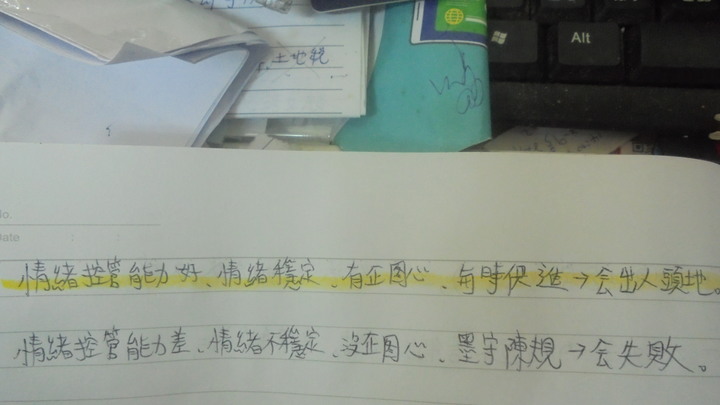 土地稅
Alt
No.
Date
情緒控管能力好、情緒穩定、有企图心、每時促進→会出人頭地。
情緒控管能力差、情緒不穩定、沒企图心、墨守陳規→会失敗。